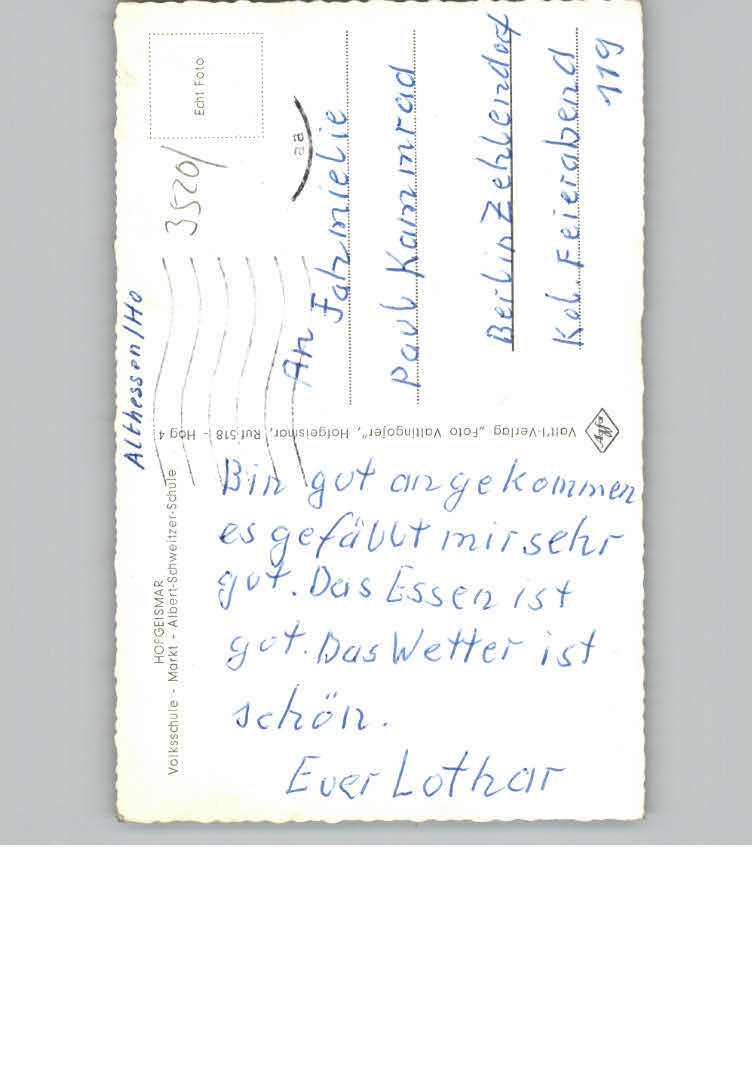 Althessen/Ho
HOFGEISMAR
Volksschule - Markt - Albert-Schweitzer-Schule
Bin gut angekommen
es gefällt mir sehr
gut. Das Essen ist
gut. Das Wetter ist
schön.
Euer Lothar
Valt'l-Verlag „Foto Valtingojer", Hofgeismar, Ruf 518 - Hog 4
Agfa
Echt Foto
3520/
aa
An
Fahmielie
Paul Kammrad
Berlin Zehlendorf
Kol. Feierabend
119